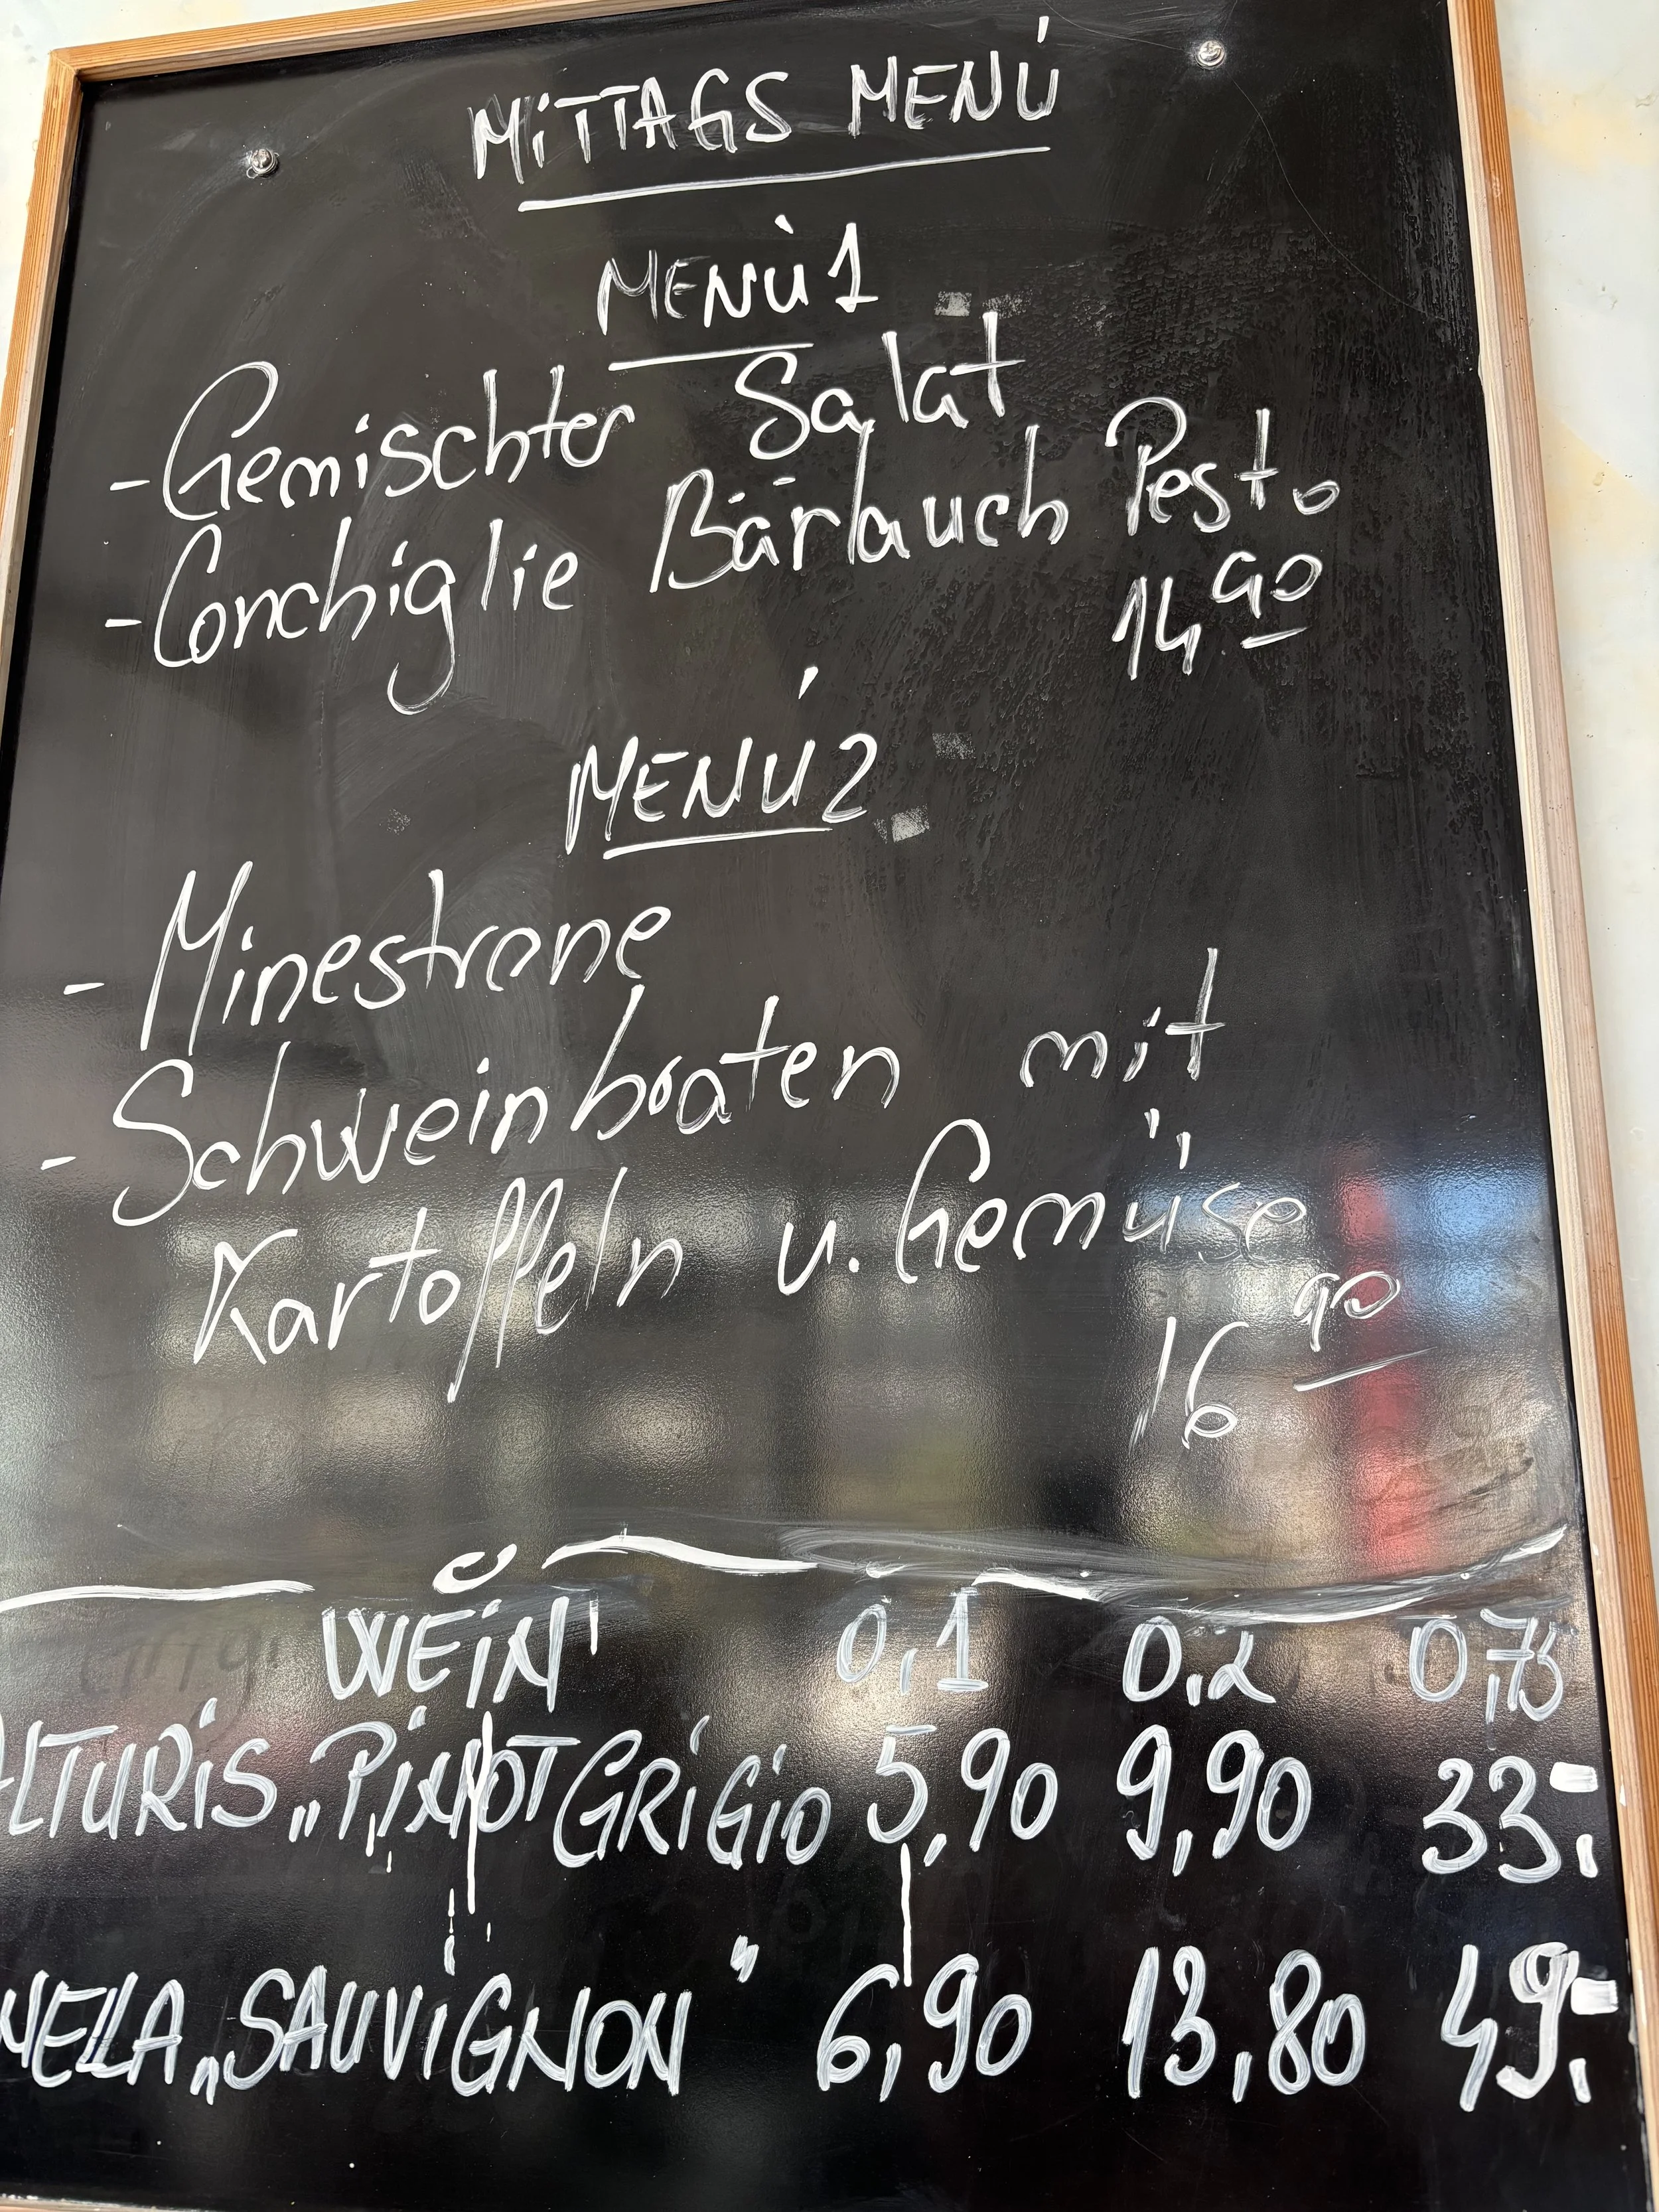 MiTTAGS MENÚ
MENÙ 1
- Gemischter Salat
- Conchiglie Bärlauch Pesto
14 90
MENÚ 2
- Minestrone
- Schweinbraten mit
Kartoffeln u. Gemüse
16 90
WEiN 0,1 0,2 0,75
LTURiS „PiNOT GRiGiO 5,90 9,90 33,-
NELA „SAUViGNON" 6,90 13,80 49,-